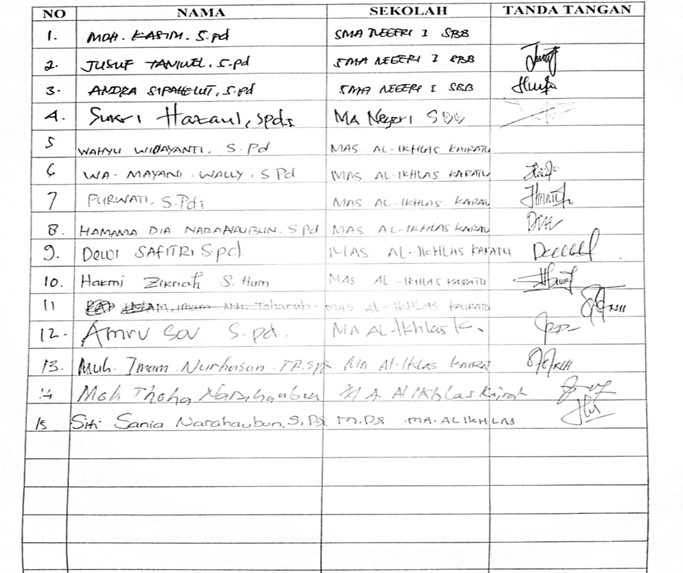 NO NAMA SEKOLAH TANDA TANGAN
1. MOH. KASIM. S.pd SMA NEGERI 1 SBB
2. JUSUF TANIWEL. S.pd SMA NEGERI 1 SBB
3. ANDRA SIPAHELUT, S.pd SMA NEGERI 1 SBB
4. Sukri Hazaul, Spdi MA Negeri SBB
5 WAHYU WIDAYANTI. S.Pd MAS AL-IKHLAS KAIRATU
6 WA. MAYANI WALLY. S.Pd MAS AL-IKHLAS KAIRATU
7 PURWATI. S.Pdi MAS AL-IKHLAS KAIRAT
8. HAMAMA DIA NARAHAUBUN. S.Pd MAS AL-IKHLAS KAIRATU
9. DEWI SAFITRI S.pd MAS AL-IKHLAS KAIRATU
10. Hakmi Zikriah S. Hum MAS AL-IKHLAS KAIRATU
11 MAS AL-IKHLAS KAIRATU
12. Amru Sou S.pd. MA AL-Ikhlas K.
13. Muh. Imam Nurhasan MA Al-IKHLAS KAIRAT
14 Moh Thoha Narahaubun MA Al Ikhlas Kairat
15 Siti Sania Narahaubun, S.Pd M.Pd MA. AL IKHLAS